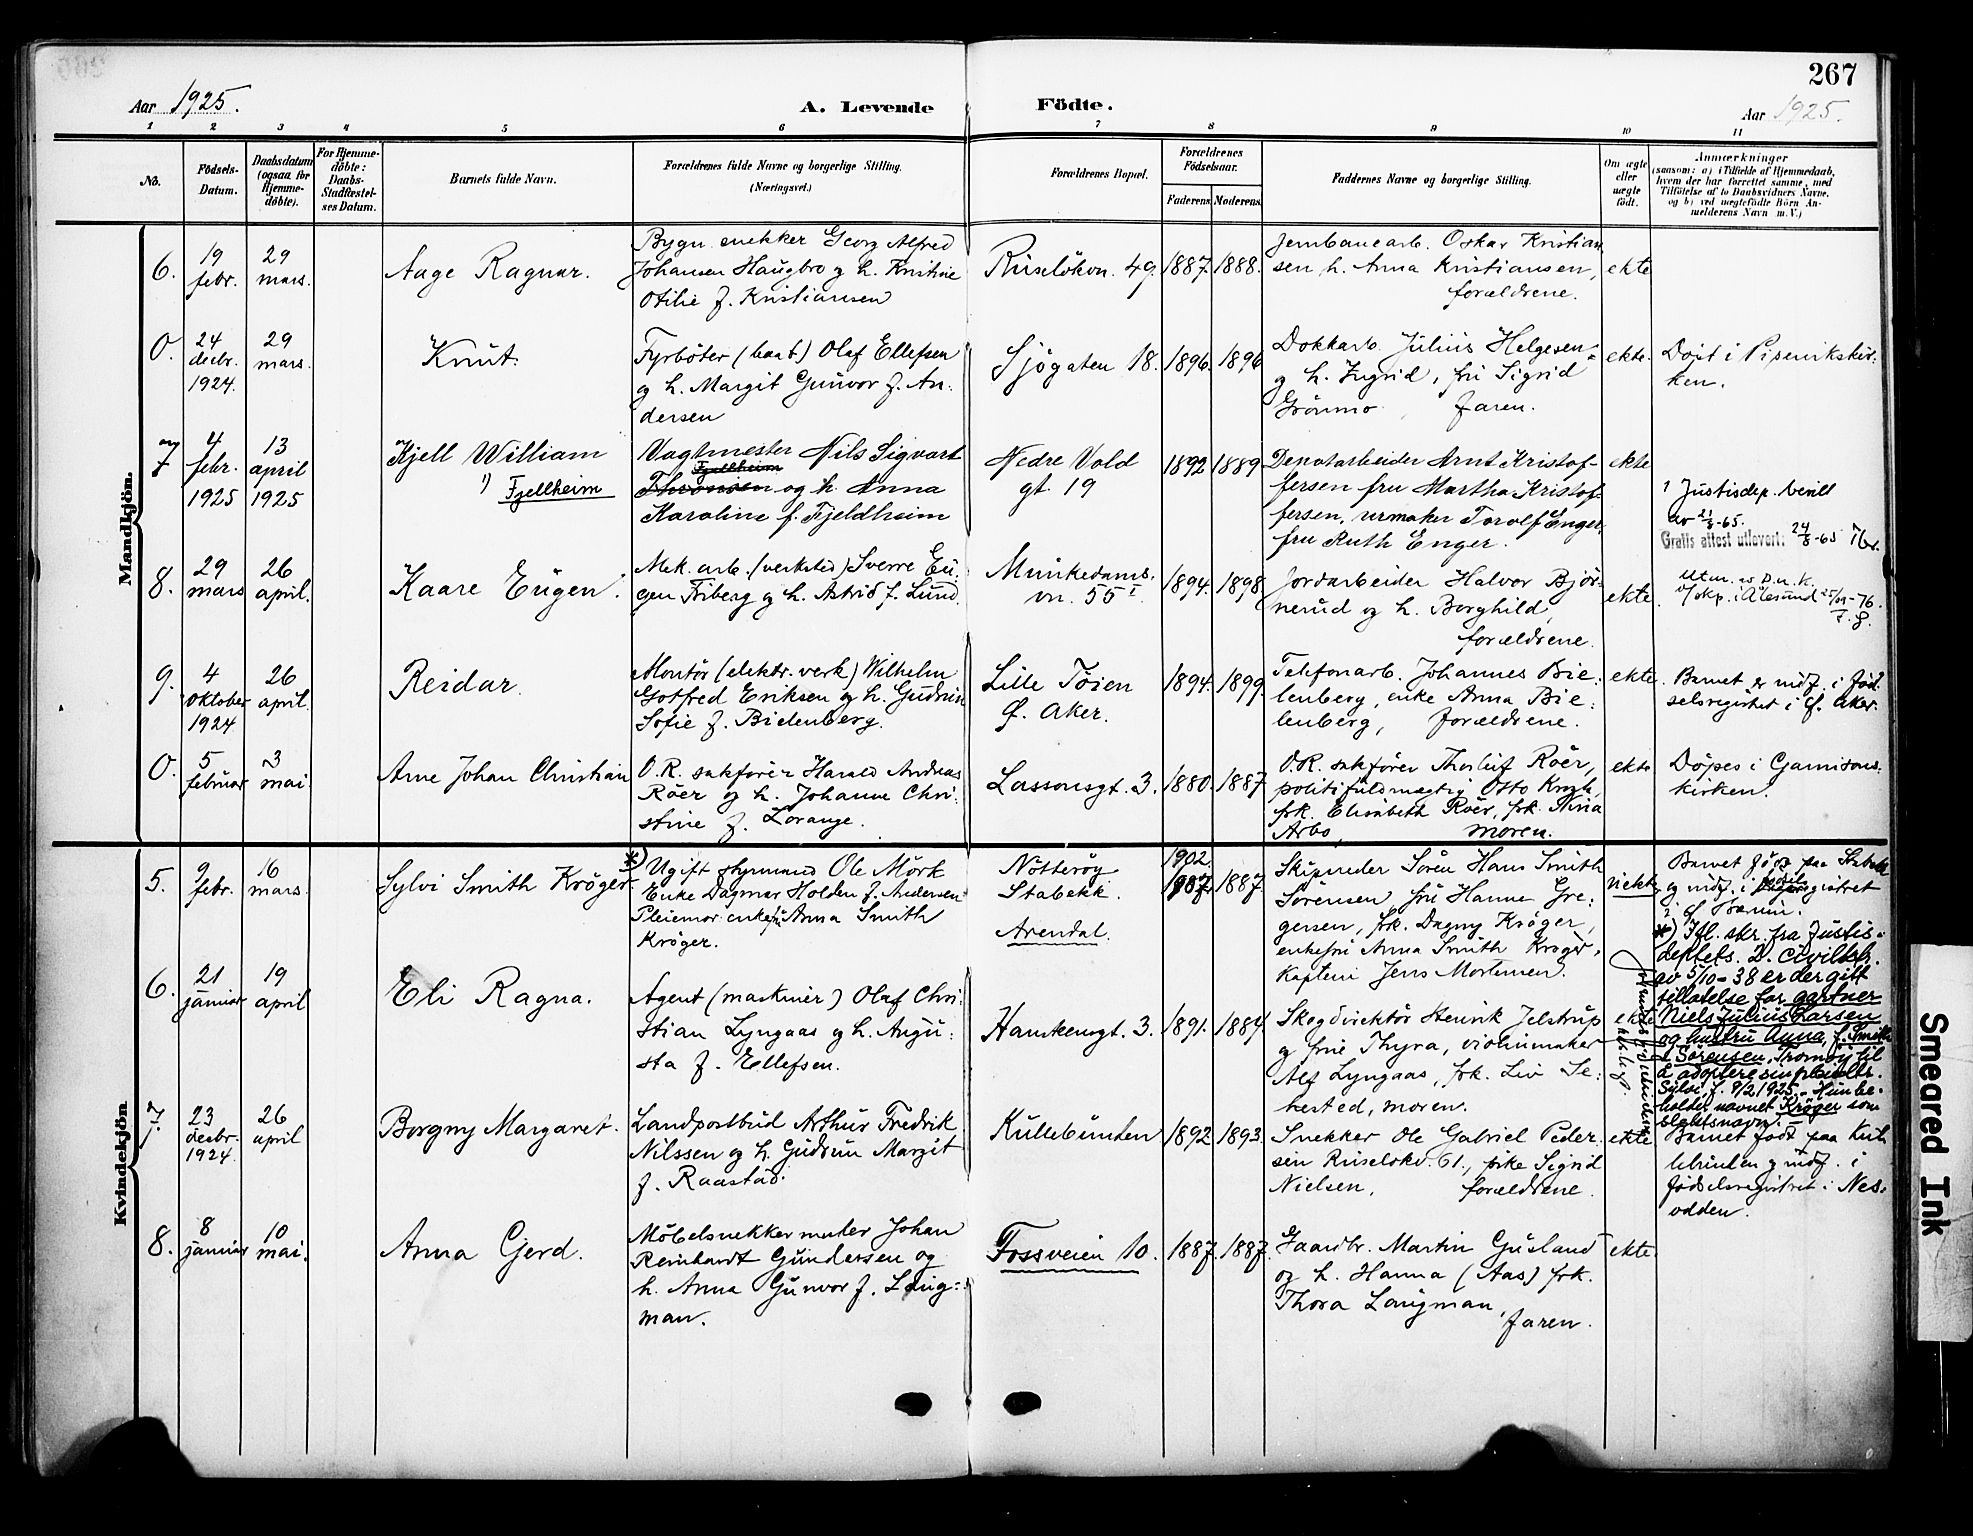 267
Aar 1925.
A. Levende Födte.
Aar 1925.
1 2 3 4 5 6 7 8 9 10 11
No.
Födsels-
Datum.
Daabsdatum
(ogsaa for
Hjemme-
döbte).
For Hjemme-
döbte:
Daabs-
Stadfæstel-
ses Datum.
Barnets fulde Navn.
Forældrenes fulde Navne og borgerlige Stilling.
(Næringsvei.)
Forældrenes Bopæl.
Forældrenes
Födselsaar.
Faderens
Moderens
Faddernes Navne og borgerlige Stilling.
Om ægte
eller
uægte
födt.
Anmærkninger
(saasom: a) i Tilfælde af Hjemmedaab,
hvem der har forrettet samme, med
Tilföielse af to Daabsvidners Navne,
og b) ved uægtefödte Börn An-
melderens Navn m. V.)
Mandkjön.
6.
19
febr.
29
mars.
Aage Ragnar.
Bygn. snekker Georg Alfred
Johansen Haugbro og h. Kristine
Otilie f. Kristiansen
Ruselökvn. 49.
1887.
1888.
Jernbanearb. Oskar Kristian
sen h. Anna Kristiansen,
forældrene.
ekte
0.
24
decbr.
1924.
29
mars.
Knut.
Fyrböter (baat) Olaf Ellefsen
og h. Margit Gunvor f. An.
dersen
Sjögaten 18.
1896.
1896
Dokkarb. Julius Helgesen
og h. Ingrid, fru Sigrid
Grönmo, faren.
ekte.
Döpt i Pipervikskir.
ken.
7
4
febr.
1925
13
april
1925
Kjell William
1) Fjellheim
Vagtmester Nils Sigvart
Fjellheim
og h. Anna
Karoline f. Fjeldheim
Nedre Vold
gt. 19
1892
1889
Depotarbeider Arnt Kristof-
fersen fru Martha Kristof-
fersen, urmaker Torolf Enger,
fru Ruth Enger.
ekte
1 Justisdep. bevill
av 21/8-65.
Gratis attest utlevert: 24/8-65
8.
29
mars
26
april.
Kaare Eugen.
Mek. arb. (verksted) Sverre Eu-
gen Friberg og h. Astrid f. Lund.
Munkedams.
vn. 55 I
1894.
1898.
Jordarbeider Halvor Björ-
nerud og h. Borghild,
forældrene.
ekte.
Utm. av D.n.k.
v/skp. i Ålesund
9.
4
oktober
1924
26
april.
Reidar.
Montör (elektr. verk) Wilhelm
Gotfred Eriksen og h. Gudrun
Sofie f. Bielenberg.
Lille Töien
Ö. Aker.
1894.
1899.
Telefonarb. Johannes Bie-
lenberg, enke Anna Bie-
lenberg, forældrene.
ekte.
Barnet er indf. i Föd
selsregistret i Ö. Aker.
0.
5
februar
3
mai.
Arne Johan Christian
O.R. sakförer Harald Andreas
Röer og h. Johanne Chri-
stine f. Lorange.
Lassonsgt. 3.
1880.
1887.
O.R. sakförer Thorleif Röer,
politifuldmægtig Otto Krogh,
frk. Elisabeth Röer, frk. Nina
Arbo, moren.
ekte
Döpes i Garnisons-
kirken.
Kvindekjön
5.
9
febr.
16
mars.
Sylvi Smith Kröger.
*) Ugift styrmand Ole Mörk
Enke Dagmar Holden f. Andersen
Pleiemor: enkefru Anna Smith
Kröger.
Nötteröy
Stabekk.
Arendal.
1902.
1887.
Skipsreder Sören Hans Smith
Sörensen, fru Hanne Gre-
gersen, frk. Dagny Kröger,
enkefru Anna Smith Kröger,
kaptein Jens Mortensen.
uekte
Barnet född paa Stabekk
og indf. i födselsregistret
i Ö. Bærum.
*) Ifl. skr. fra Justis-
deptets. D. Civilkt.
av 5/10-38 er der gitt
tillatelse for gartner
Niels Julius Larsen
og hustru Anna, f. Smith
Sörensen, Tromöy til
å adoptere sin pleiedtr.
Sylvi, f. 9/2 1925. Hun be-
holder navnet Kröger som
slektsnavn.
6.
21
januar
19
april
Eli Ragna.
Agent (maskiner) Olaf Chri-
stian Lyngaas og h. Augu-
sta f. Ellefsen.
Hanskensgt. 3.
1891.
1884.
Skogdirektör Henrik Jelstrup
og frue Thyra, violinmaker
Alf Lyngaas, frk. Liv Se-
hested, moren.
ekte
7.
23
desbr.
1924.
26
april
Borgny Margaret.
Landpostbud Arthur Fredrik
Nilssen og h. Gudrun Margit
f. Raastad.
Kullebunden
1892
1893.
Snekker Ole Gabriel Peder-
sen Ruselökv. 61., frke Sigrid
Nielsen, forældrene.
ekte
Barnet född paa Kul-
lebunden og indf. i
födselsregistret i Nes-
odden.
8.
8
januar
10
mai.
Anna Gjerd.
Möbelsnekkermester Johan
Reinhardt Gundersen og
h. Anna Gunvor f. Laug-
man.
Fossveien 10.
1887.
1887.
Gaardbr. Martin Gusland
og h. Hanna (Aas) frk.
Thora Laugman,
faren.
ekte.
Smeared Ink